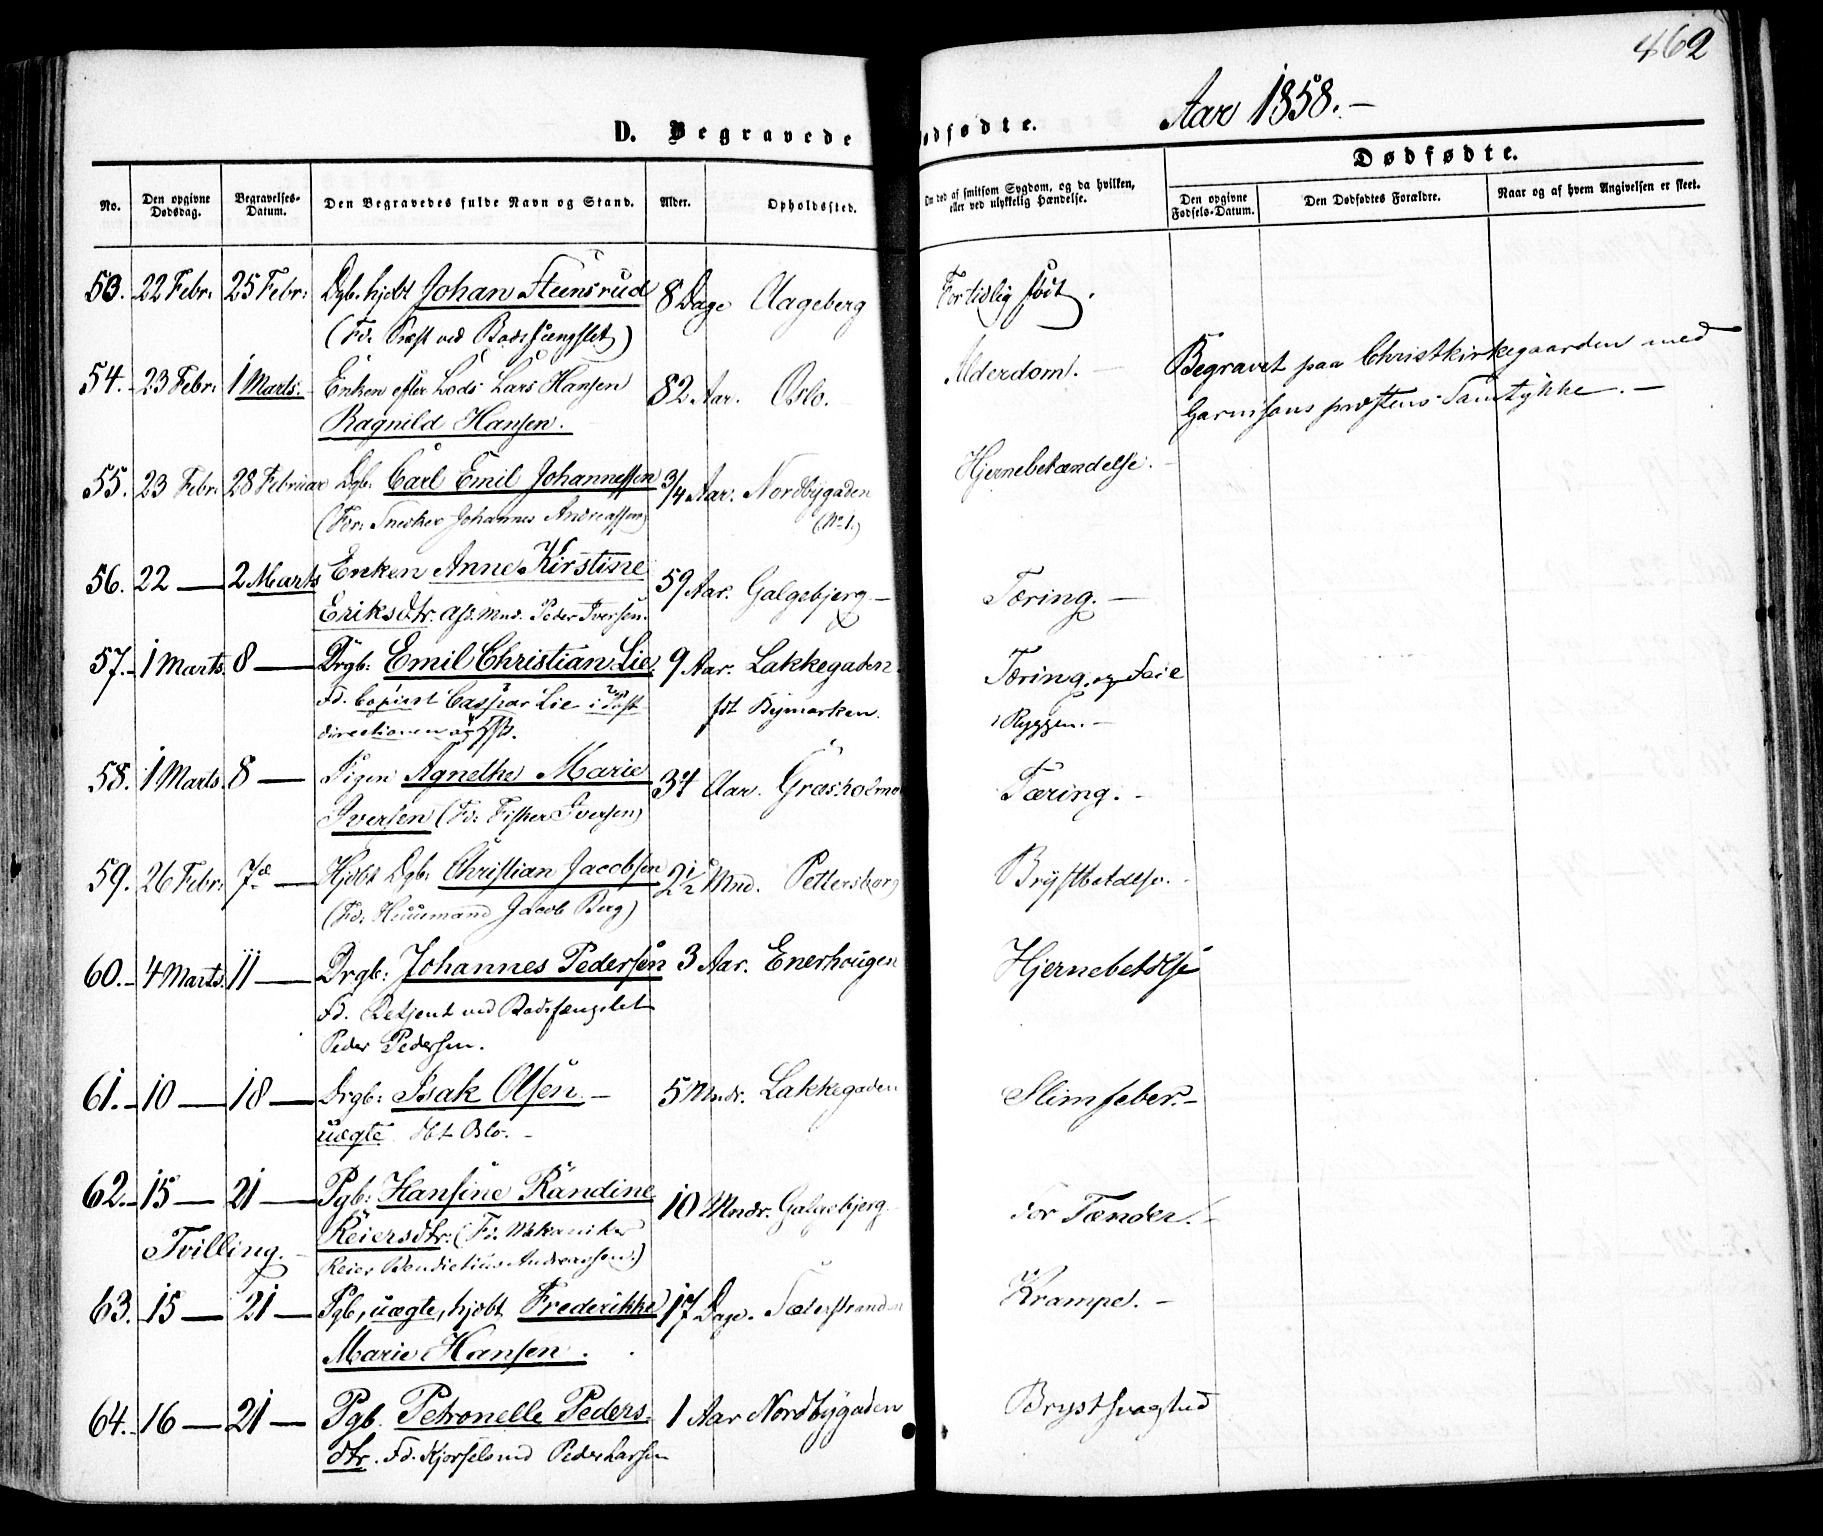 462
Aar 1858.-
D. Begravede
ødfødte.
Dødfødte.
No.
Den opgivne Dødsdag.
Begravelses-Datum.
Den Begravedes fulde Navn og Stand.
Alder.
Opholdssted.
Om død af smitsom Sygdom, og da hvilken, eller ved ulykkelig Hændelse.
Den opgivne Fødsels-Datum.
Den Dødfødtes Forældre.
Naar og af hvem Angivelsen er skeet.
53. 22 Febr. 25 Febr. Dgb. hjdbt Johan Steensrud 8 Dage Aageberg For tidlig født.
(Fd. ved Bodsfængslet)
54. 23 Febr. 1 Marts. Enken efter Lods Lars Hansen 82 Aar. Oslo. Alderdom. - Begravet paa Christkirkegaarden med
Ragnild Hansen. Garnisonspræstens Samtykke. -
55. 23 Febr. 28 Februar Dgb. Carl Emil Johannessen 3/4 Aar. Nordbygaden Hjernebetændelse. -
(Fdr. Snedker Johannes Andreassen) (No 1.)
56. 22 — 2 Marts Enken Anne Kirstine 59 Aar. Galgebjerg - Tæring. -
Eriksdtr. afd. Mnd. Peder Iversen.
57. 1 Marts. 8 — Drgb: Emil Christian Lie. 9 Aar. Lakkegaden. Tæring og Feil
Fd. Copiist Caspar Lie i fdt Bymarken. i Ryggen. -
directionen
58. 1 Marts. 8 — Pigen Agnethe Marie 34 Aar. Græsholmen Tæring. -
Iversen (Fd: Fisker Iversen)
59. 26 Febr. 7de — Hjdbt Dgb. Christian Jacobsen 2 1/2 Mnd. Pettersborg Brystbetdlse. -
(Fd. Huusmand Jacob Berg)
60. 4 Marts. 11 — Drgb: Johannes Pedersen 3 Aar. Enerhougen Hjernebetdlse
Fd. Betjent ved Bodsfængslet
Peder Pedersen.
61. 10 — 18 — Drgb: Isak Olsen. - 5 Mndr. Lakkegaden Slimfeber. -
uægte dbt Oslo. -
62. 15 — 21 — Pgb: Hansine Randine 10 Mndr. Galgebjerg - for Tænder. -
Tvilling. - Reiersdtr. (Fd. Mekaniker
Reier Bendictius Andreassen.)
63. 15 — 21 — Pgb, uægte, hjdbt Frederikke 17 Dage. Sæterstranden Krampe. -
Marie Hansen.
64. 16 — 21 — Pgb. Petronelle Peders- 1 Aar Nordbygaden Brystsvaghed
dtr. Fd. Kjørselsmd Peder Larsen